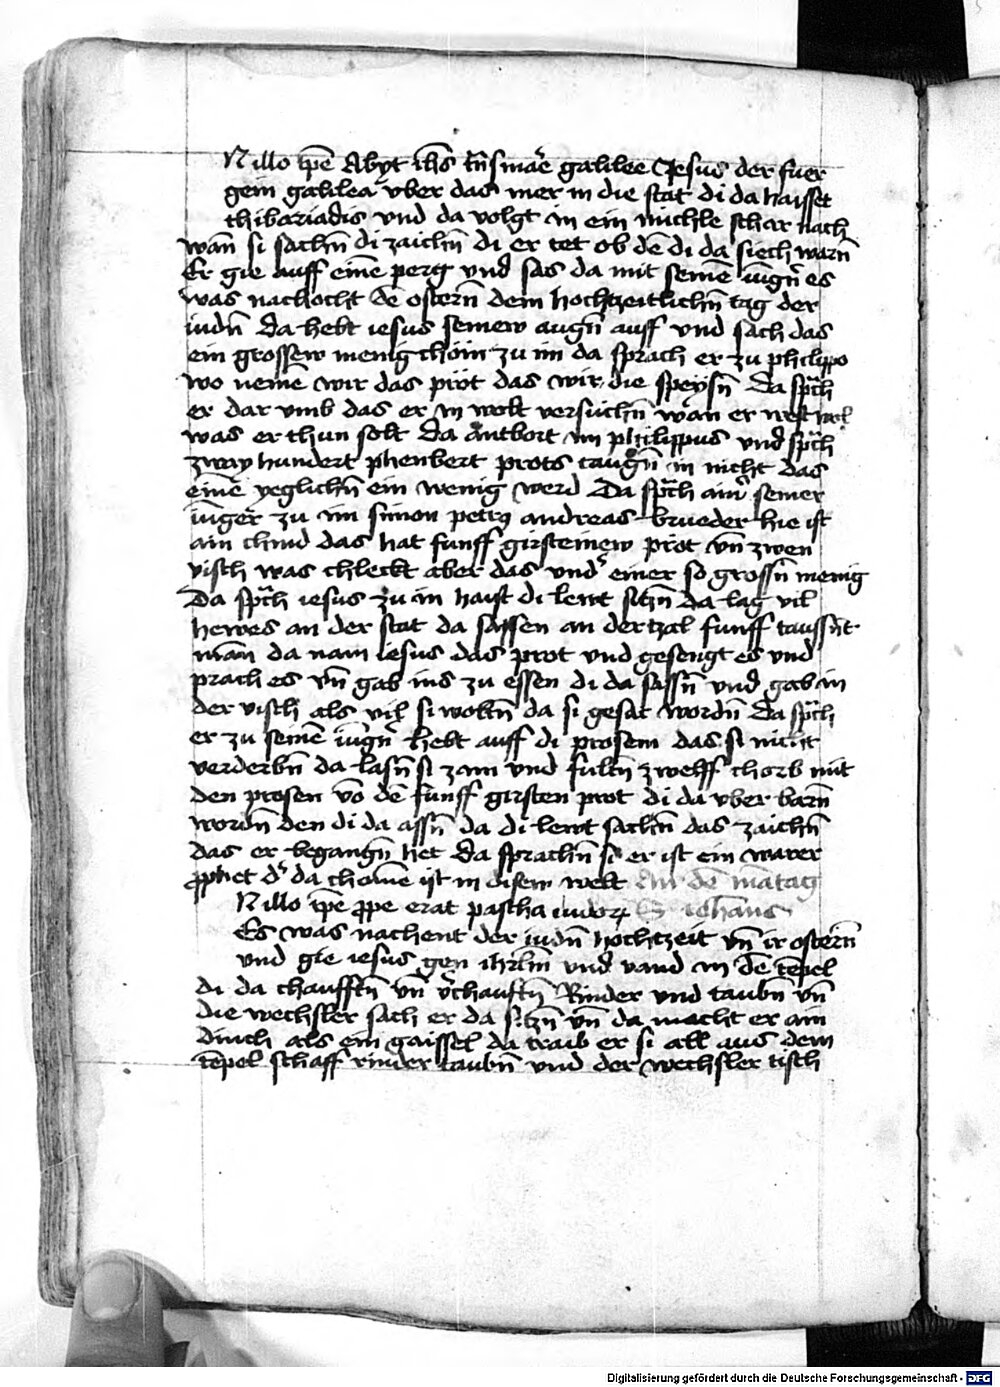 N illo tp̄e Abyt ih̄s tn̄s mar̄e galilee Jesus der fuer
gein galilea vber das mer in die stat di da haisset
thibariadis vnd da volgt in ein michle schar nach
wan̄ si sachn̄ di zaichn̄ di er tet ob dē di da siech warn̄
Er gie auff einē perg vnd sas da mit seinē iūgn̄ es
was nachocht dē ostern̄ dem hochtzeitlichn̄ tag der
iudn̄ da hebt iesus seinew augn̄ auff vnd sach das
ein grossew menig chōm zu im da sprach er zu philippo
wo nemē wir das pröt das wir die speysn̄ Da sp̄ch
er dar vmb das er in wolt versuchn̄ wan er west wol
was er thun solt Da antbort im philippus vnd sp̄ch
zway hundert phenbert prots taugn̄ in nicht das
einē yeglichn̄ ein wenig werd Da sp̄ch ain̄ seiner
iūger zu im simon petrꝰ andreas brueder hie ist
ain chind das hat funff girsteinew prot vn̄ zwen
visch was chleckt aber das vnd̾ einer so grossn̄ menig
Da sp̄ch iesus zu in haist di lewt sitzn̄ da lag vil
hewes an der stat da sassen an der tzal funff taussn̄t
man̄ da nam iesus das prot vnd gesengt es vnd
prach es vn̄ gab ins zu essen di da sassn̄ vnd gab in
der visch als vil si woltn̄ da si gesat wordn̄ da sp̄ch
er zu seinē iūgn̄ hebt auff di prosem das si nicht
verderbn̄ da lasn̄ si zam vnd fultn̄ zwelff chorb mit
den prosen vō dē funff girsten prot di da vber barn̄
wordn̄ den di da assn̄ da di lewt sachn̄ das zaichn̄
das er begangn̄ het Da sprachn̄ si er ist ein warer
ꝓphet d̾ da chomē ist in disem welt An dē mātag
N illo tp̄e ꝓpe erat pascha iudoꝝ S iohānes
Es was nachent der iudn̄ hochtzeit vn̄ ir ostern̄
vnd gie iesus gen ihrlm̄ vnd vand in dē tēpel
di da chaufftn̄ vn̄ v̾chauftn̄ Rinder vnd taubn̄ vn̄
die wechsler sach er da sitzn̄ vn̄ da macht er ain
dinch als ein gaissel da traib er si all aus dem
tēpel schaff rinder taubn̄ vnd der wechsler tisch
Digitalisierung gefördert durch die Deutsche Forschungsgemeinschaft - DFG